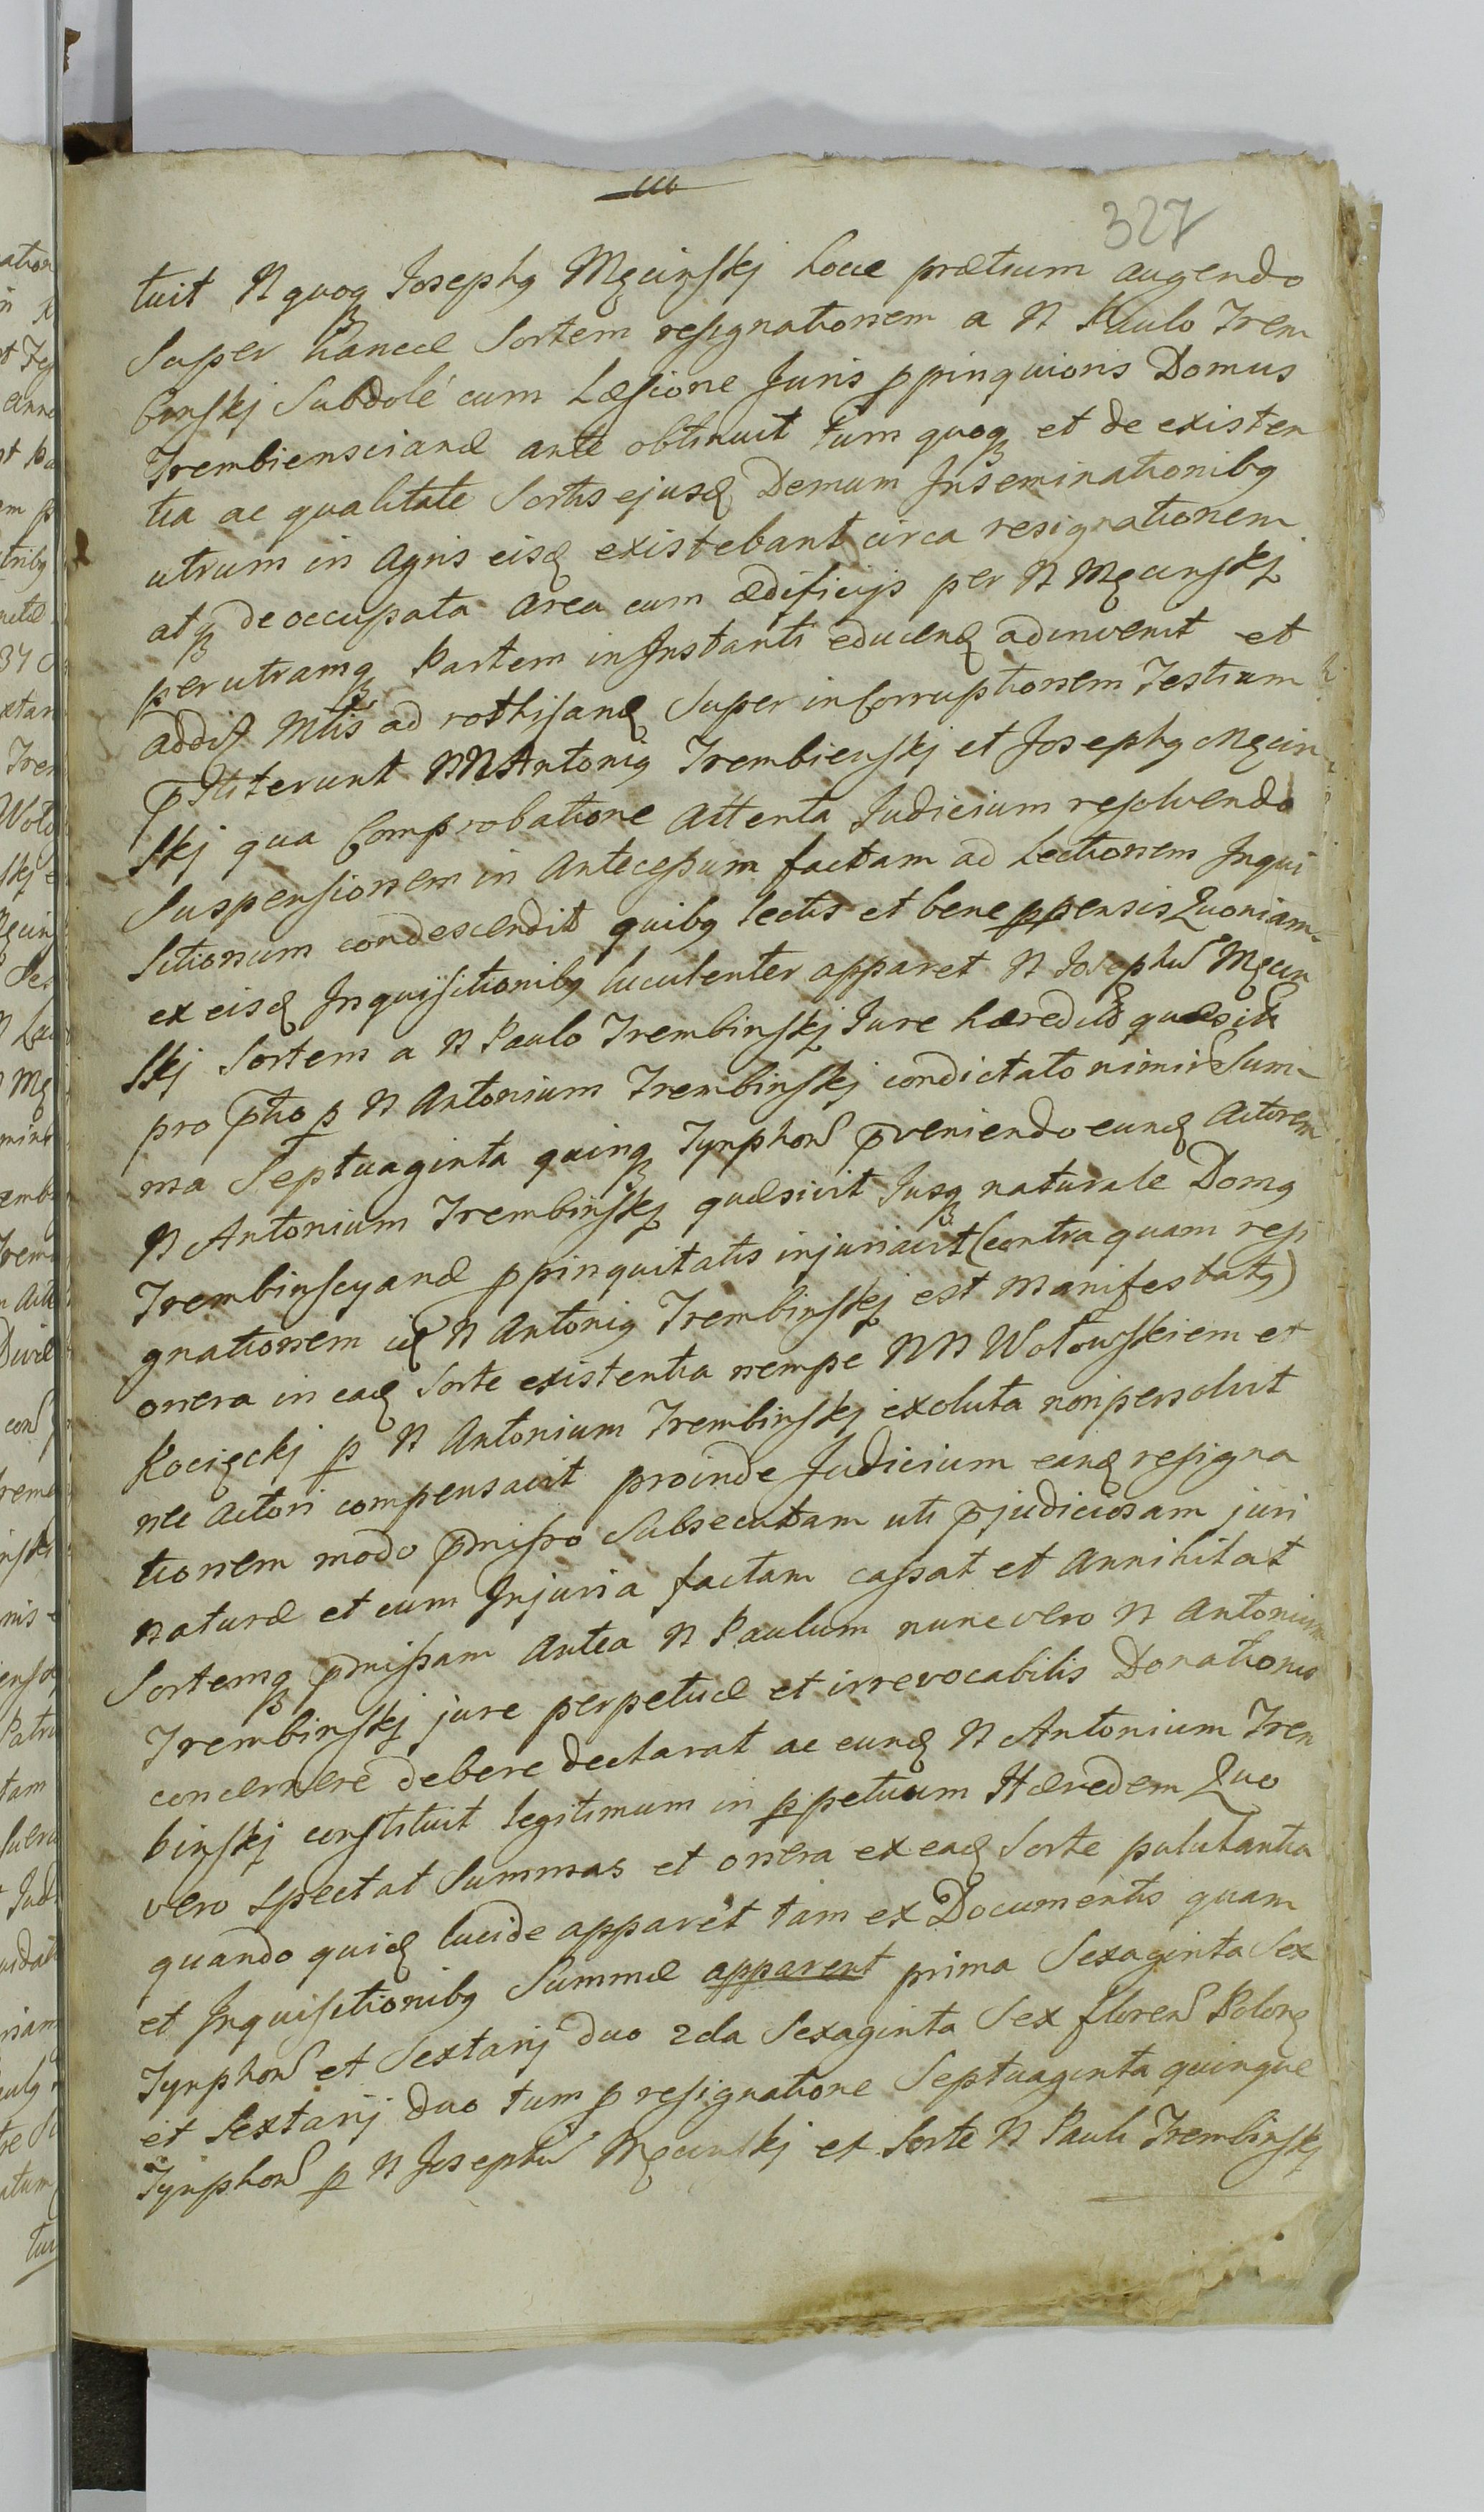 327
tuit N quoq Josephg Męcinskj hocce prætium augendo
super hancce Sortem resignationem a N Paulo Trem
binskj Subdolé cum Læsione Juris ppinquioris Domus
Trembiensciand ante obtinuit tum quoq et de existen
tia ac qualitate Sortis ejusd Demum Inseminationibg
utrum in Agris eisd existebant circa resignationem
atq de occupata area cum ædificijs per N Męcinskj
per utramq Partem in Instanti educend adinvenit et
addit Mtis ad rothisand Super inCorruptionem Testium
pstiterunt NN Antonig Trembienskj et Josephg Męcin
skj qua Comprobatione Attenta Judicium resolvendo
Suspensionem in Antecessum factam ad Lectionem Inqui
sitionum condescendit quibg lectis et bene ppensis Quoniam
ex eisd Inquisitionibg luculenter apparet N Josephus Męcin
skj Sortem a N Paulo Trembinskj Jure hæredit quæsit
pro ptio p N Antonium Trembinskj condictato nimir Sum-
ma Septuaginta quinq Tynphon pveniendo eund Actorem
N Antonium Trembinskj quæsivit Jusq naturale Domg
Trembinscyanæ ppinquitatis injuriavit (contra quam resi
gnationem id N Antonig Trembinskj est Manifestatg)
onera in ead Sorte existentia nempe NN Wołowskiem et
Kocięckj p N Antonium Trembinskj exoluta non persolvit
nec Actori compensavit proinde Judicium eand resigna
tionem modo pmisso Subsecutam uti pjudiciosam juri
naturæ et cum Injuria factam cassat et annihilat
Sortemq pmissam Antea N Paulum nunc vero N Antonium
Trembinskj jure perpetuæ et irrevocabilis Donationis
concernere debere declarat ac eund N Antonium Trem
binskj constituit legitimum in ppetuum Hæredem Quo
vero spectat Summas et onera ex ead Sorte pulutantia
quando quid lucide apparet tam ex Documentis quam
et Inquisitionibg Summæ apparent prima Sexaginta Sex
Tynphon et Sextarij duo 2da Sexaginta Sex floren Polon
et Sextarij duo tum p resignatione Septuaginta quinque
Tynphon p N Josephu Męcinskj ex Sorte N Pauli Trembinskj